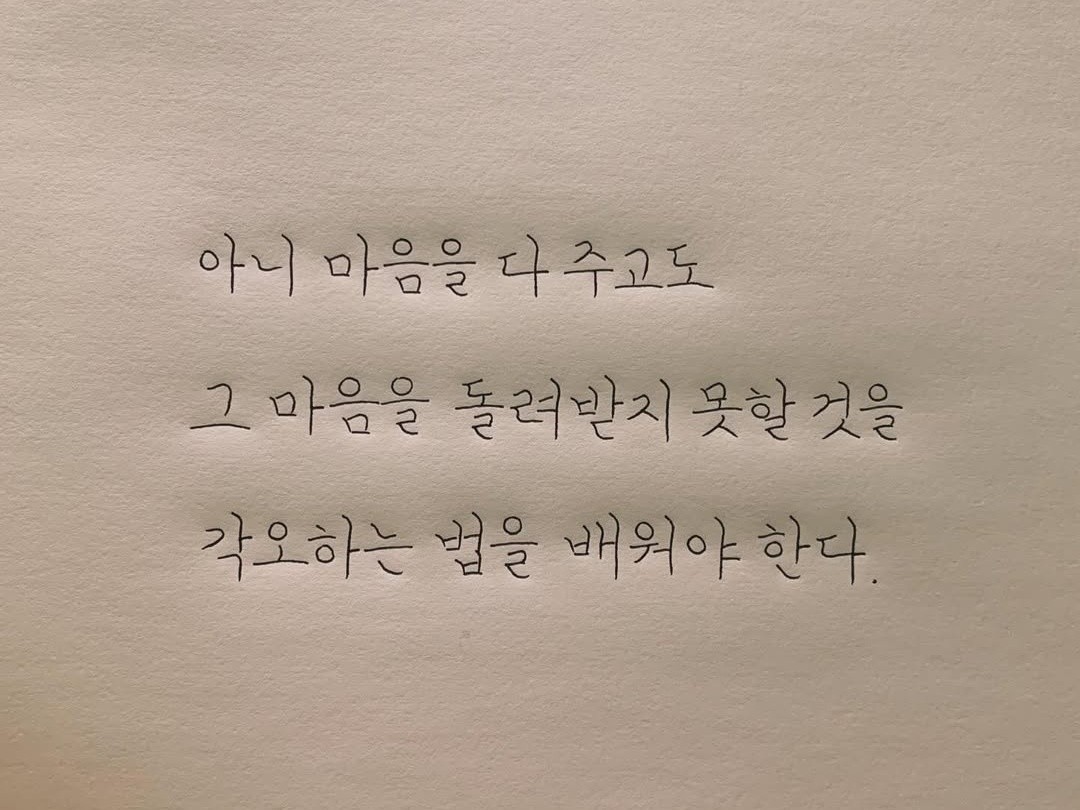 아니 마음을 다 주고도
그 마음을 돌려받지 못할 것을
각오하는 법을 배워야 한다.